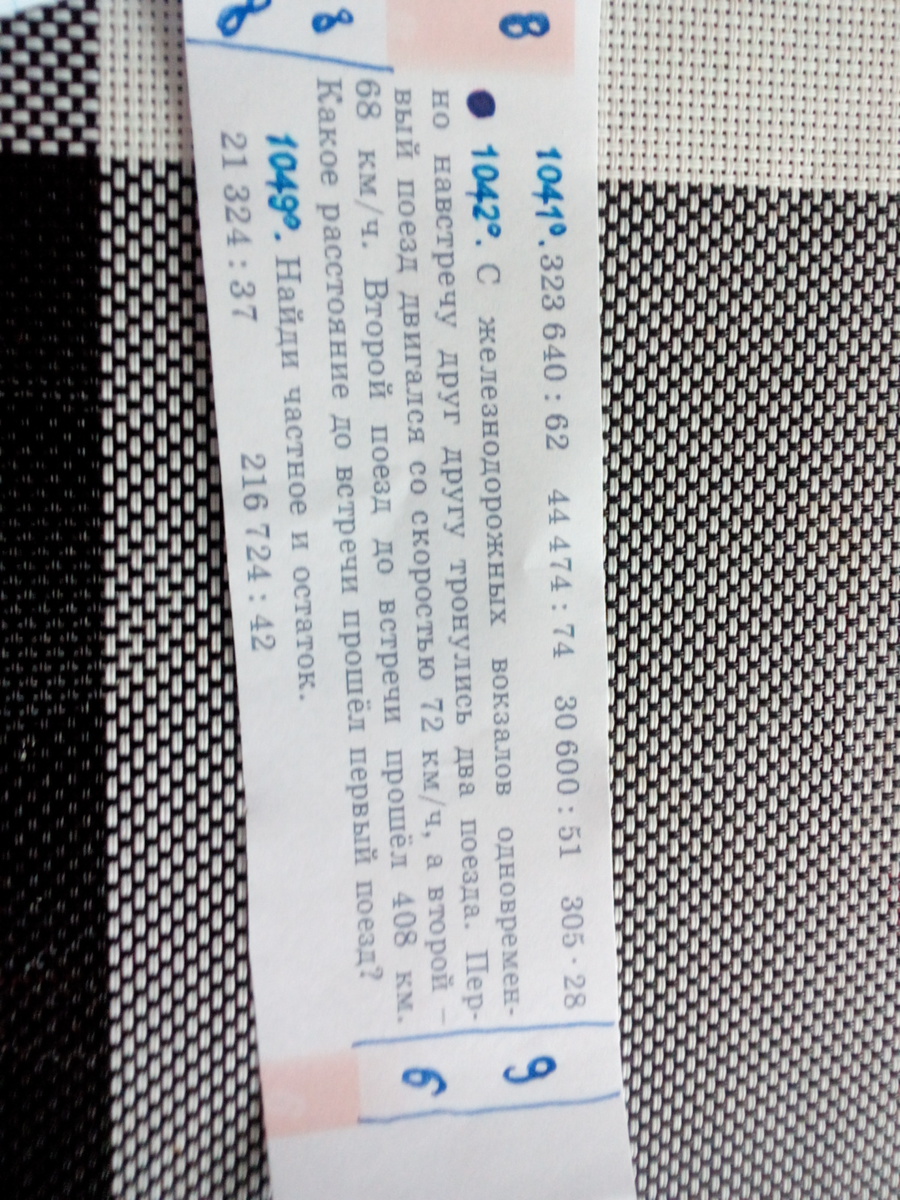 8
1041º. 323 640 : 62 44 474 : 74 30 600 : 51 305 · 28
1042º. С железнодорожных вокзалов одновремен-
но навстречу друг другу тронулись два поезда. Пер-
вый поезд двигался со скоростью 72 км/ч, а второй –
68 км/ч. Второй поезд до встречи прошёл 408 км.
Какое расстояние до встречи прошёл первый поезд?
1049º. Найди частное и остаток.
21 324 : 37 216 724 : 42
8
8
9
6